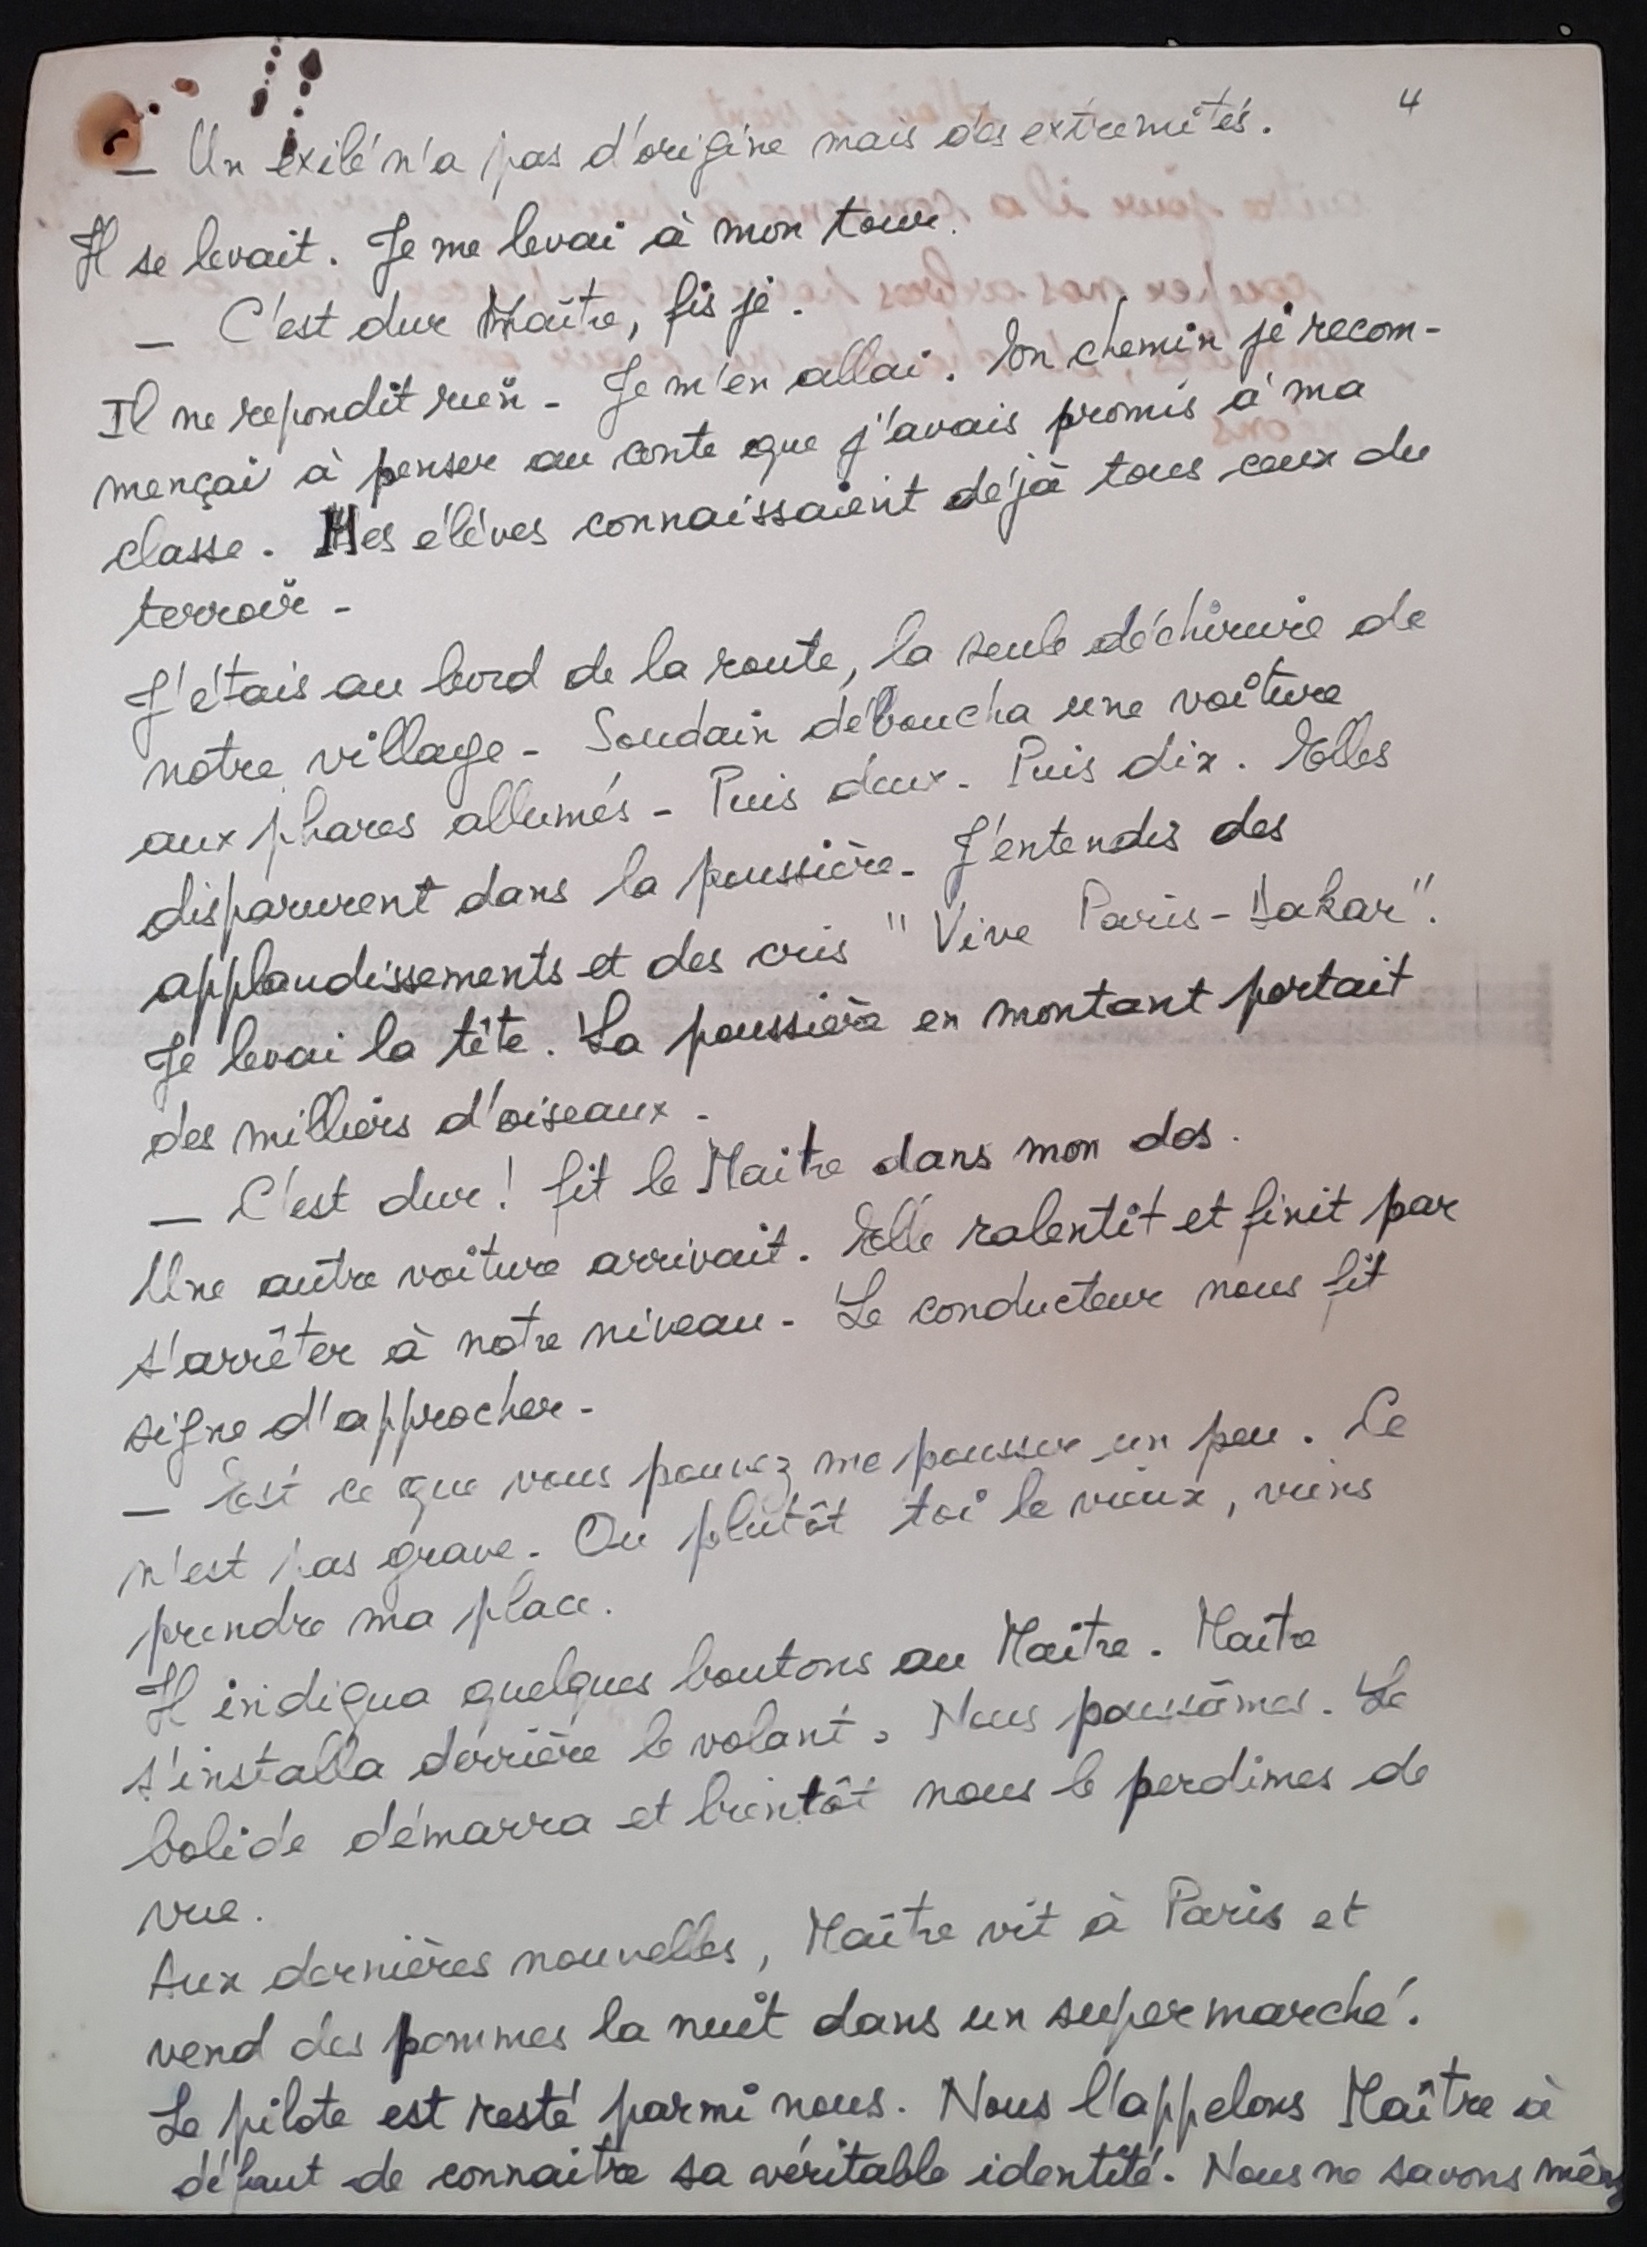 4
— Un exilé n'a pas d'origine mais des extremités.
Il se levait. Je me levai à mon tour.
— C'est dur Maître, fis je.
Il ne repondit rien - Je m'en allai. En chemin je recom-
mençai à penser au conte que j'avais promis à ma
classe. Mes élèves connaissaient déjà tous ceux du
terroir -
J'étais au bord de la route, la seule déchirure de
notre village - Soudain déboucha une voiture
aux phares allumés - Puis deux - Puis dix. Elles
disparurent dans la poussière - J'entendis des
applaudissements et des cris "Vive Paris-Dakar".
Je levai la tête. La poussière en montant portait
des milliers d'oiseaux -
— C'est dur ! fit le Maitre dans mon dos.
Une autre voiture arrivait. Elle ralentit et finit par
s'arrêter à notre niveau - Le conducteur nous fit
signe d'approcher -
— Est ce que vous pouvez me pousser un peu. Ce
n'est pas grave - Ou plutôt toi le vieux, viens
prendre ma place.
Il indiqua quelques boutons au Maître. Maître
s'installa derrière le volant. Nous poussâmes. Le
bolide démarra et bientôt nous le perdimes de
vue.
Aux dernières nouvelles, Maître vit à Paris et
vend des pommes la nuit dans un supermarché.
Le pilote est resté parmi nous. Nous l'appelons Maître à
défaut de connaitre sa véritable identité. Nous ne savons même